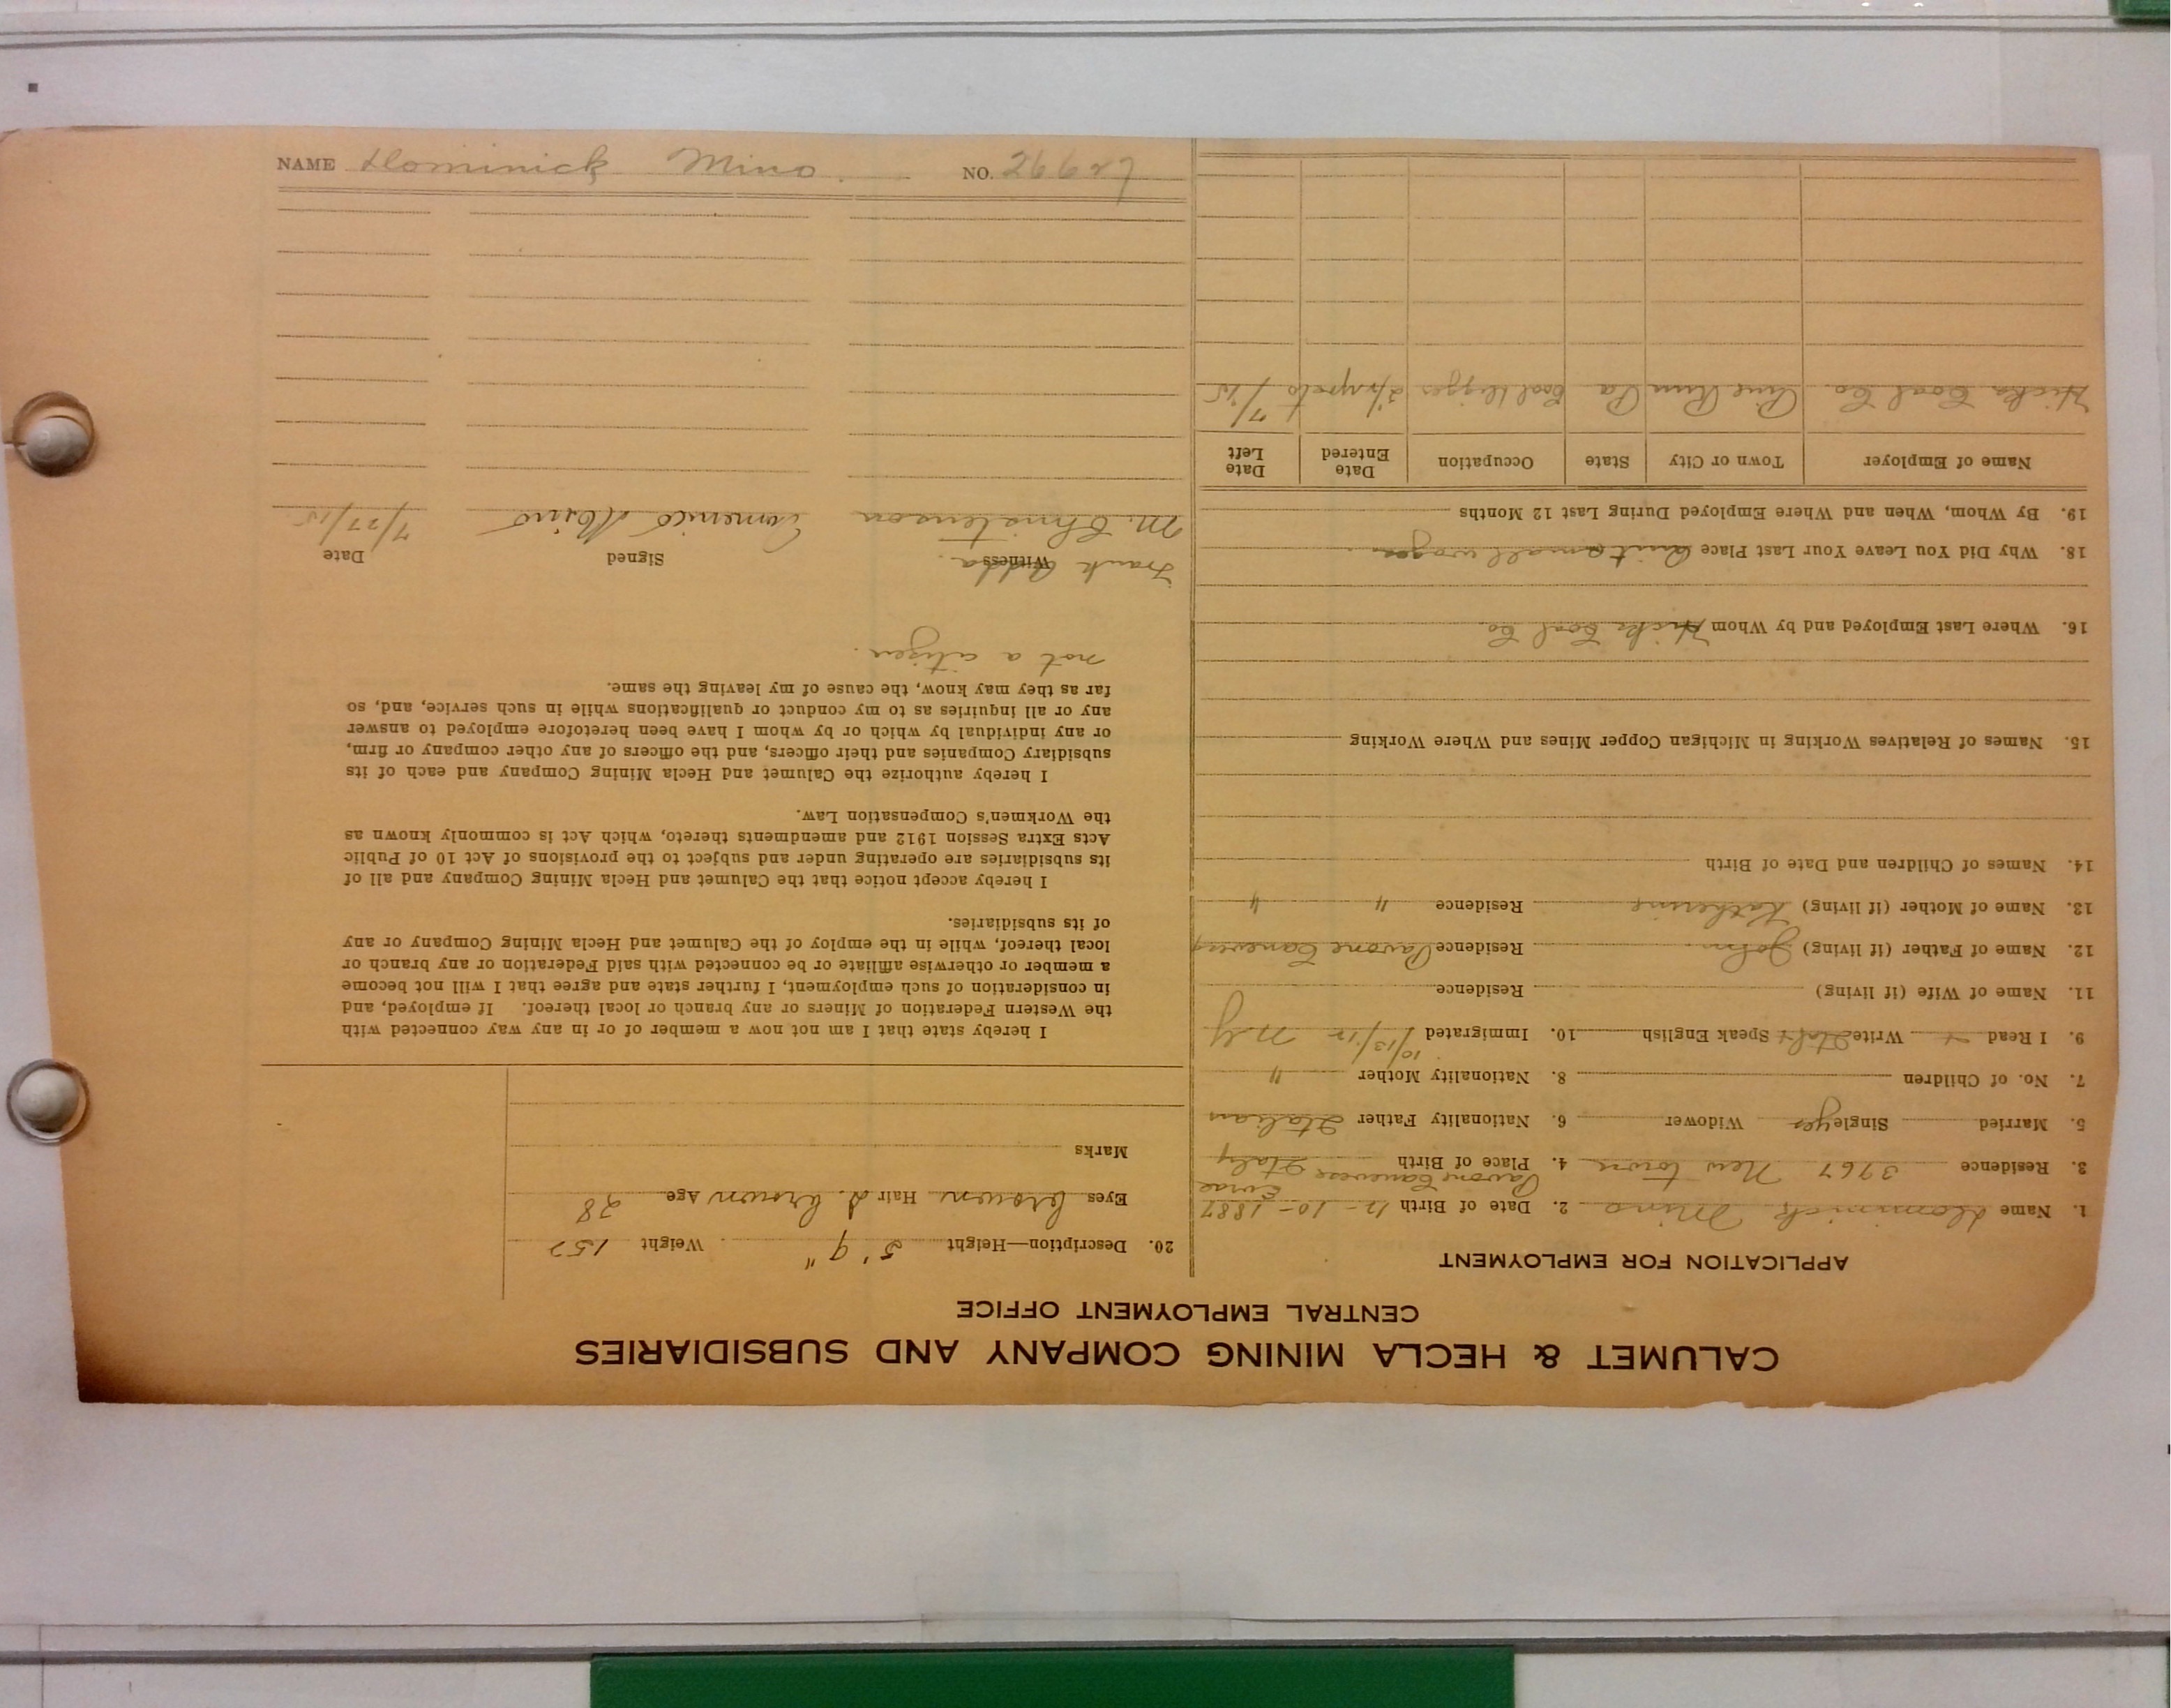 CALUMET & HECLA MINING COMPANY AND SUBSIDIARIES
CENTRAL EMPLOYMENT OFFICE
APPLICATION FOR EMPLOYMENT
1. Name Dominick Mino 2. Date of Birth 12-10-1887
3. Residence 3767 New town 4. Place of Birth Pavone Canavese Italy
5. Married Single yes Widower 6. Nationality Father Italian
7. No. of Children 8. Nationality Mother "
9. I Read Write Speak English 10. Immigrated 10/13/12 N Y
11. Name of Wife (if living) Residence
12. Name of Father (if living) John Residence Pavone Canavese
13. Name of Mother (if living) Katherine Residence " "
14. Names of Children and Date of Birth
15. Names of Relatives Working in Michigan Copper Mines and Where Working
16. Where Last Employed and by Whom Hicks Coal Co.
18. Why Did You Leave Your Last Place Quit small wages
19. By Whom, When and Where Employed During Last 12 Months
Name of Employer Town or City State Occupation Date Entered Date Left
Hicks Coal Co. Pine Run Pa Coal digger 2½ yrs to 7/15
20. Description—Height 5' 9" Weight 152
Eyes brown Hair d. brown Age 28
Marks
I hereby state that I am not now a member of or in any way connected with
the Western Federation of Miners or any branch or local thereof. If employed, and
in consideration of such employment, I further state and agree that I will not become
a member or otherwise affiliate or be connected with said Federation or any branch or
local thereof, while in the employ of the Calumet and Hecla Mining Company or any
of its subsidiaries.
I hereby accept notice that the Calumet and Hecla Mining Company and all of
its subsidiaries are operating under and subject to the provisions of Act 10 of Public
Acts Extra Session 1912 and amendments thereto, which Act is commonly known as
the Workmen's Compensation Law.
I hereby authorize the Calumet and Hecla Mining Company and each of its
subsidiary Companies and their officers, and the officers of any other company or firm,
or any individual by which or by whom I have been heretofore employed to answer
any or all inquiries as to my conduct or qualifications while in such service, and, so
far as they may know, the cause of my leaving the same.
not a citizen.
Frank Adda
Witness Signed Date
M. Christenson Domenico Mino 7/27/15
NAME Dominick Mino. NO. 26627